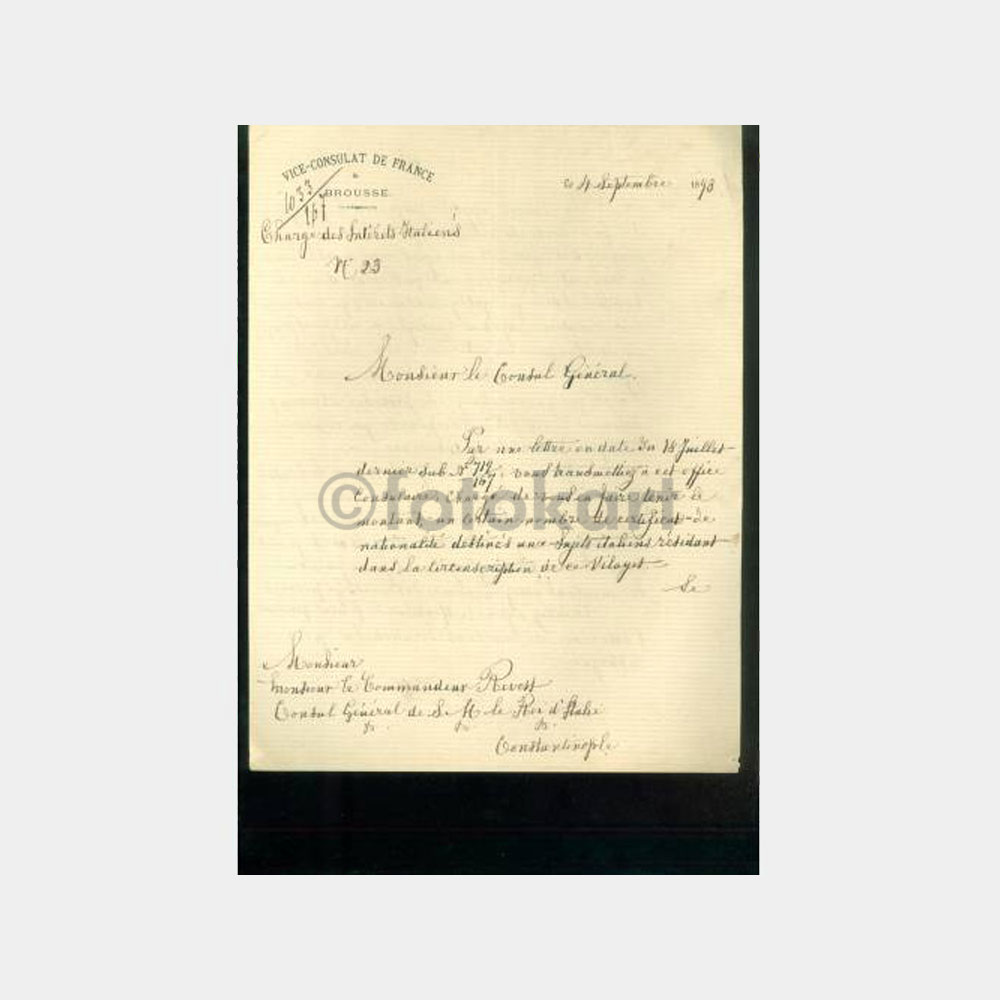 VICE-CONSULAT DE FRANCE
à
BROUSSE
1033
167
Chargé des Intérêts Italiens
N° 23
ce 4 Septembre 1893
Monsieur le Consul Général.
Par une lettre en date du 18 Juillet
dernier sub N° 719/167, vous transmettiez à cet office
Consulaire, chargé de vous en faire tenir le
montant, un certain nombre de certificats de
nationalité destinés aux sujets italiens résidant
dans la circonscription de ce Vilayet.
Monsieur
Monsieur le Commandeur
Consul Général de S. M. le Roi d'Italie
Constantinople
©fotokart